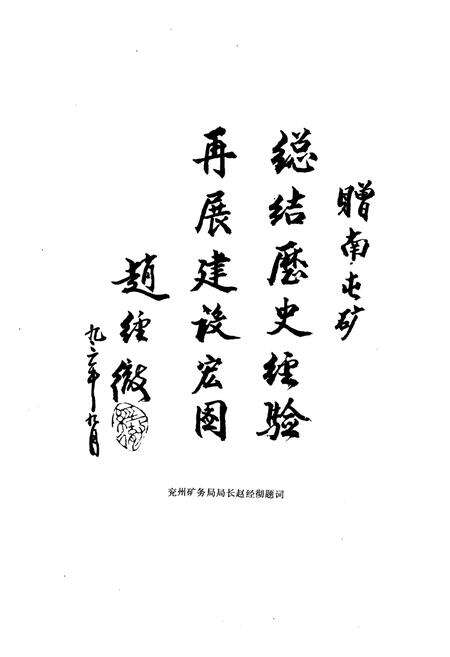 赠南屯矿
總结歷史经验
再展建设宏图
趙经徹
九二年九月
兖州矿务局局长赵经彻题词